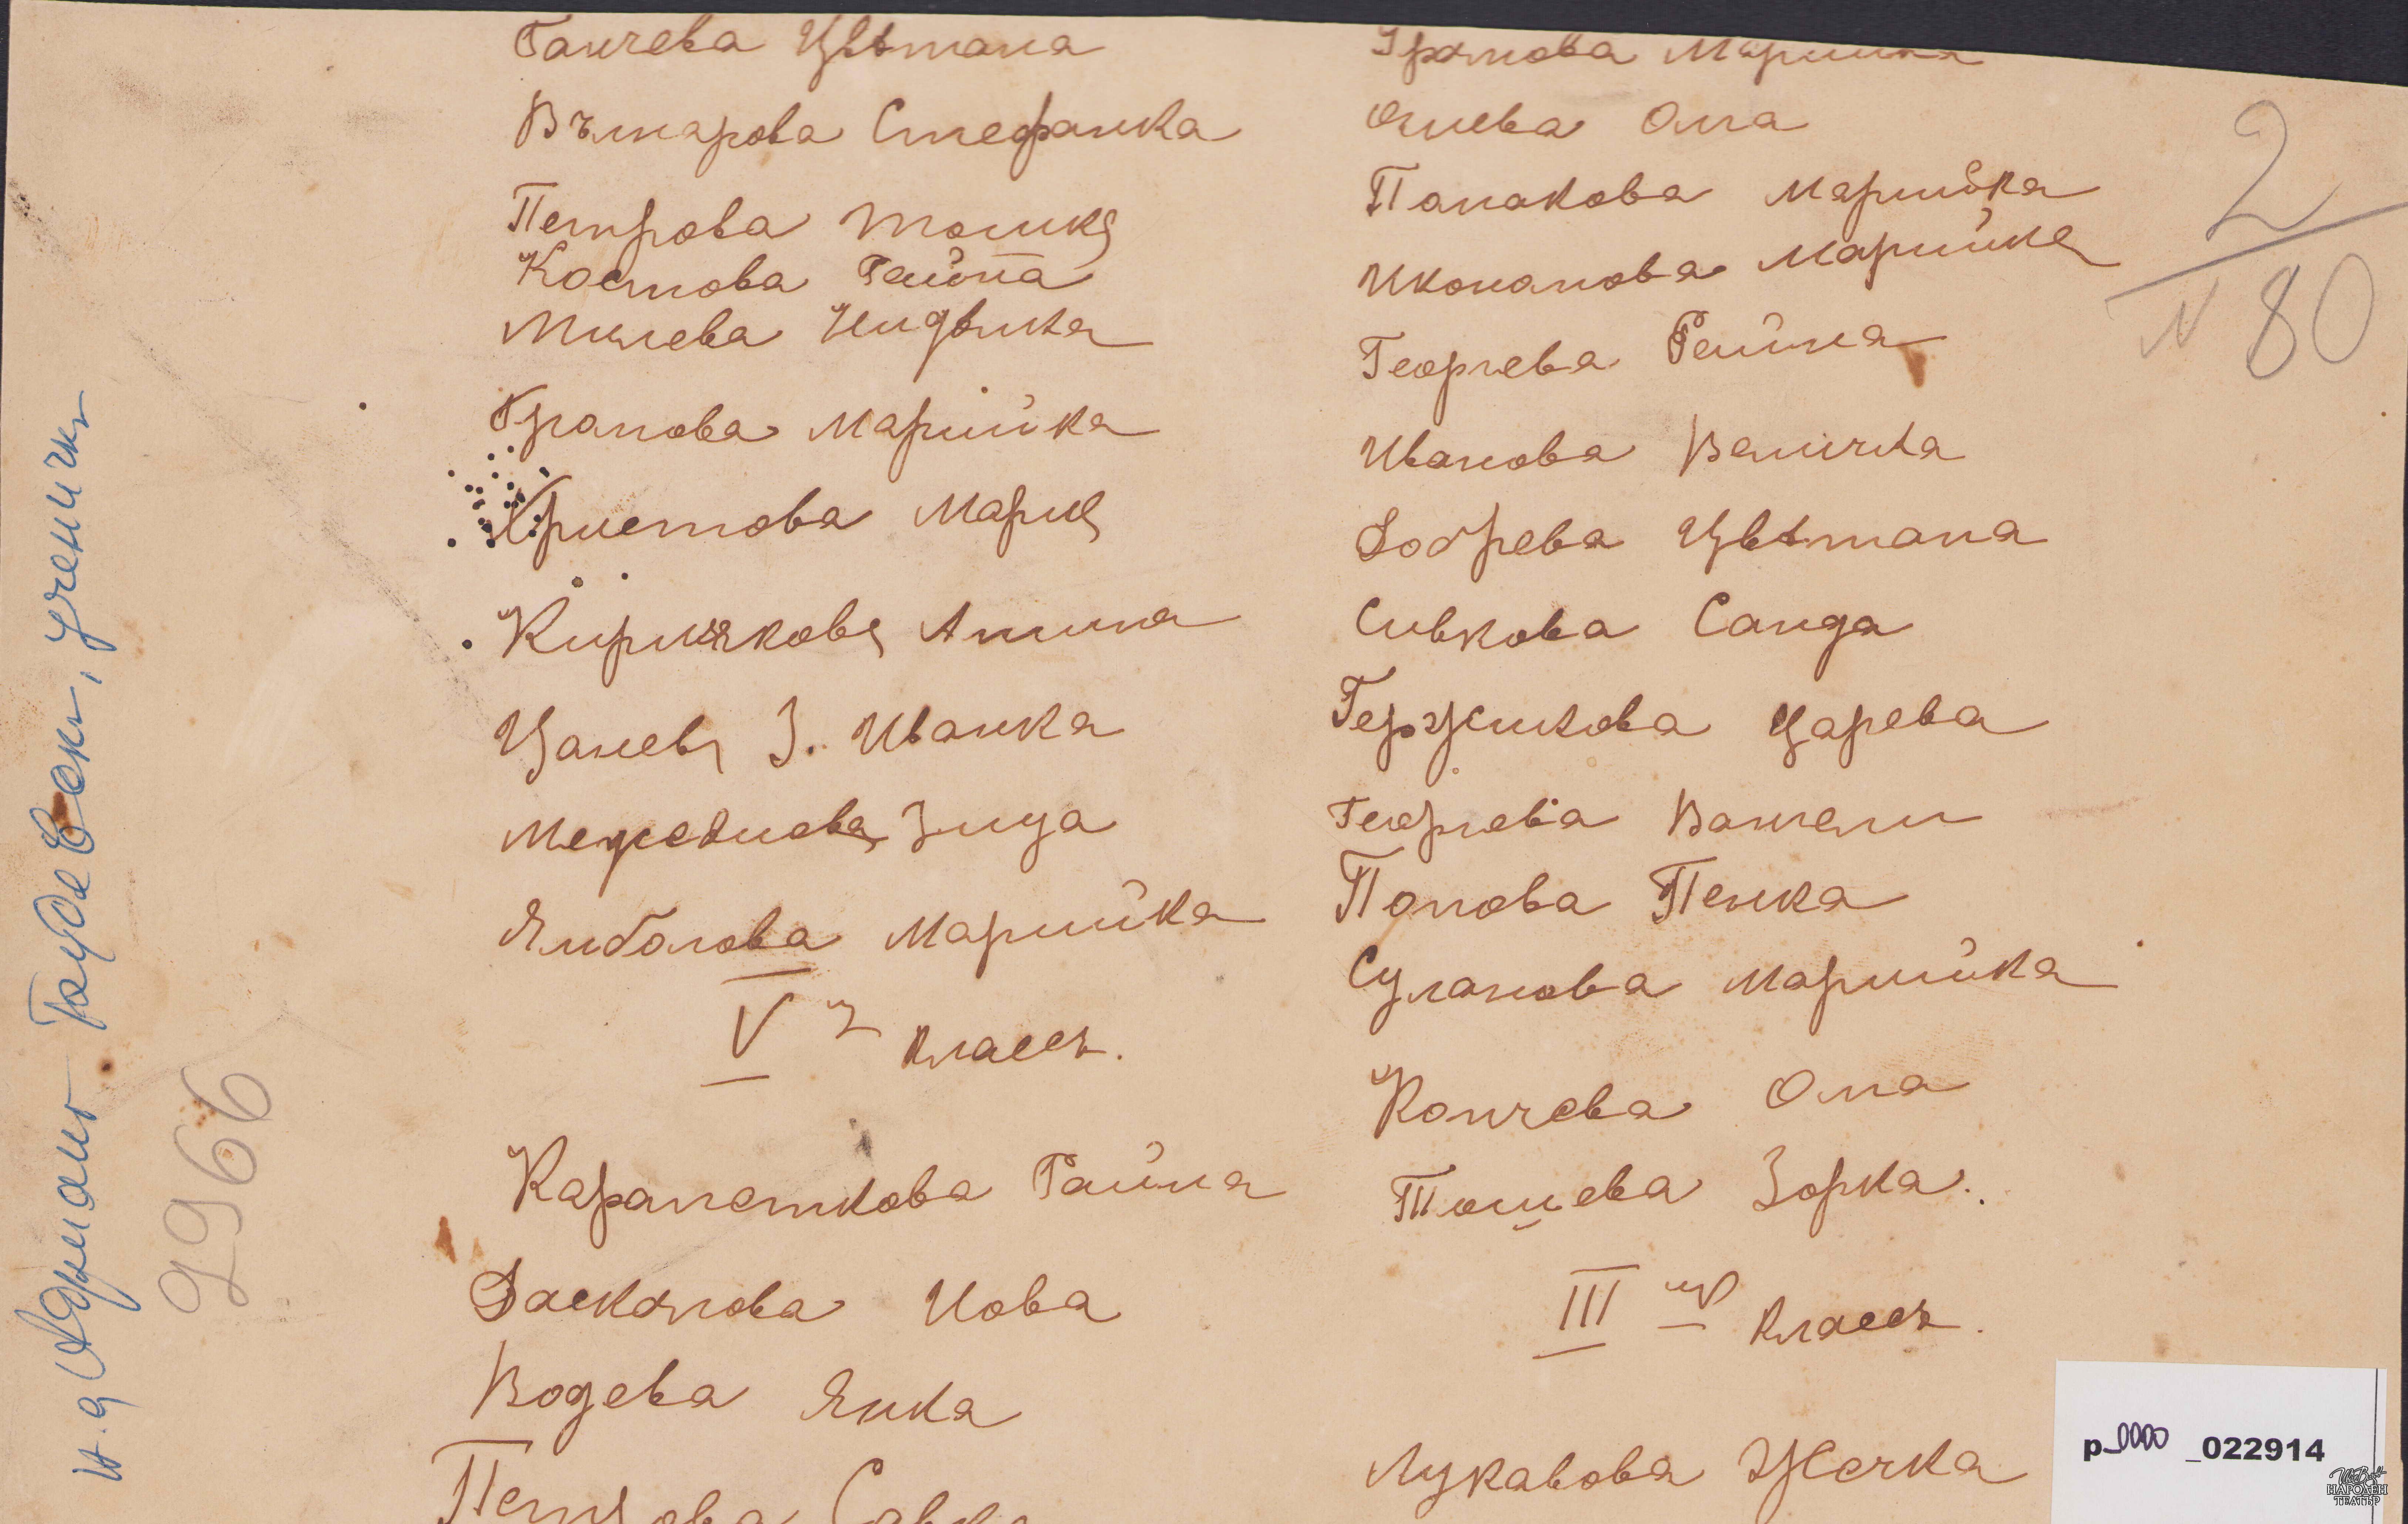 Ганчева Цвѣтана
Вълчарова Стефанка
Петрова Тошка
Костова Райна
Милева Надѣжка
Гранова Марийка
Христова Мария
Кириякова Атина
Цанева З. Иванка
Зица
Ямболова Марийка
V й классъ.
Карапеткова Райна
Даскалова Нова
Водева Янка
Петкова Савка
Грамова Марийка
Ола
Папакова Марийка
Икономова Марийка
Георгиева Райна
Иванова Величка
Добрева Цвѣтана
Сивкова Санда
Гержикова Царева
Георгиева
Попова Пенка
Суланова Марийка
Кончева Ола
Тошева Зорка.
III ий классъ.
Лукавова Жечка
2
N 80
н. д Адриана Будевска, ученичка
2966
p_0000_022914
НАРОДЕН
ТЕАТЪР